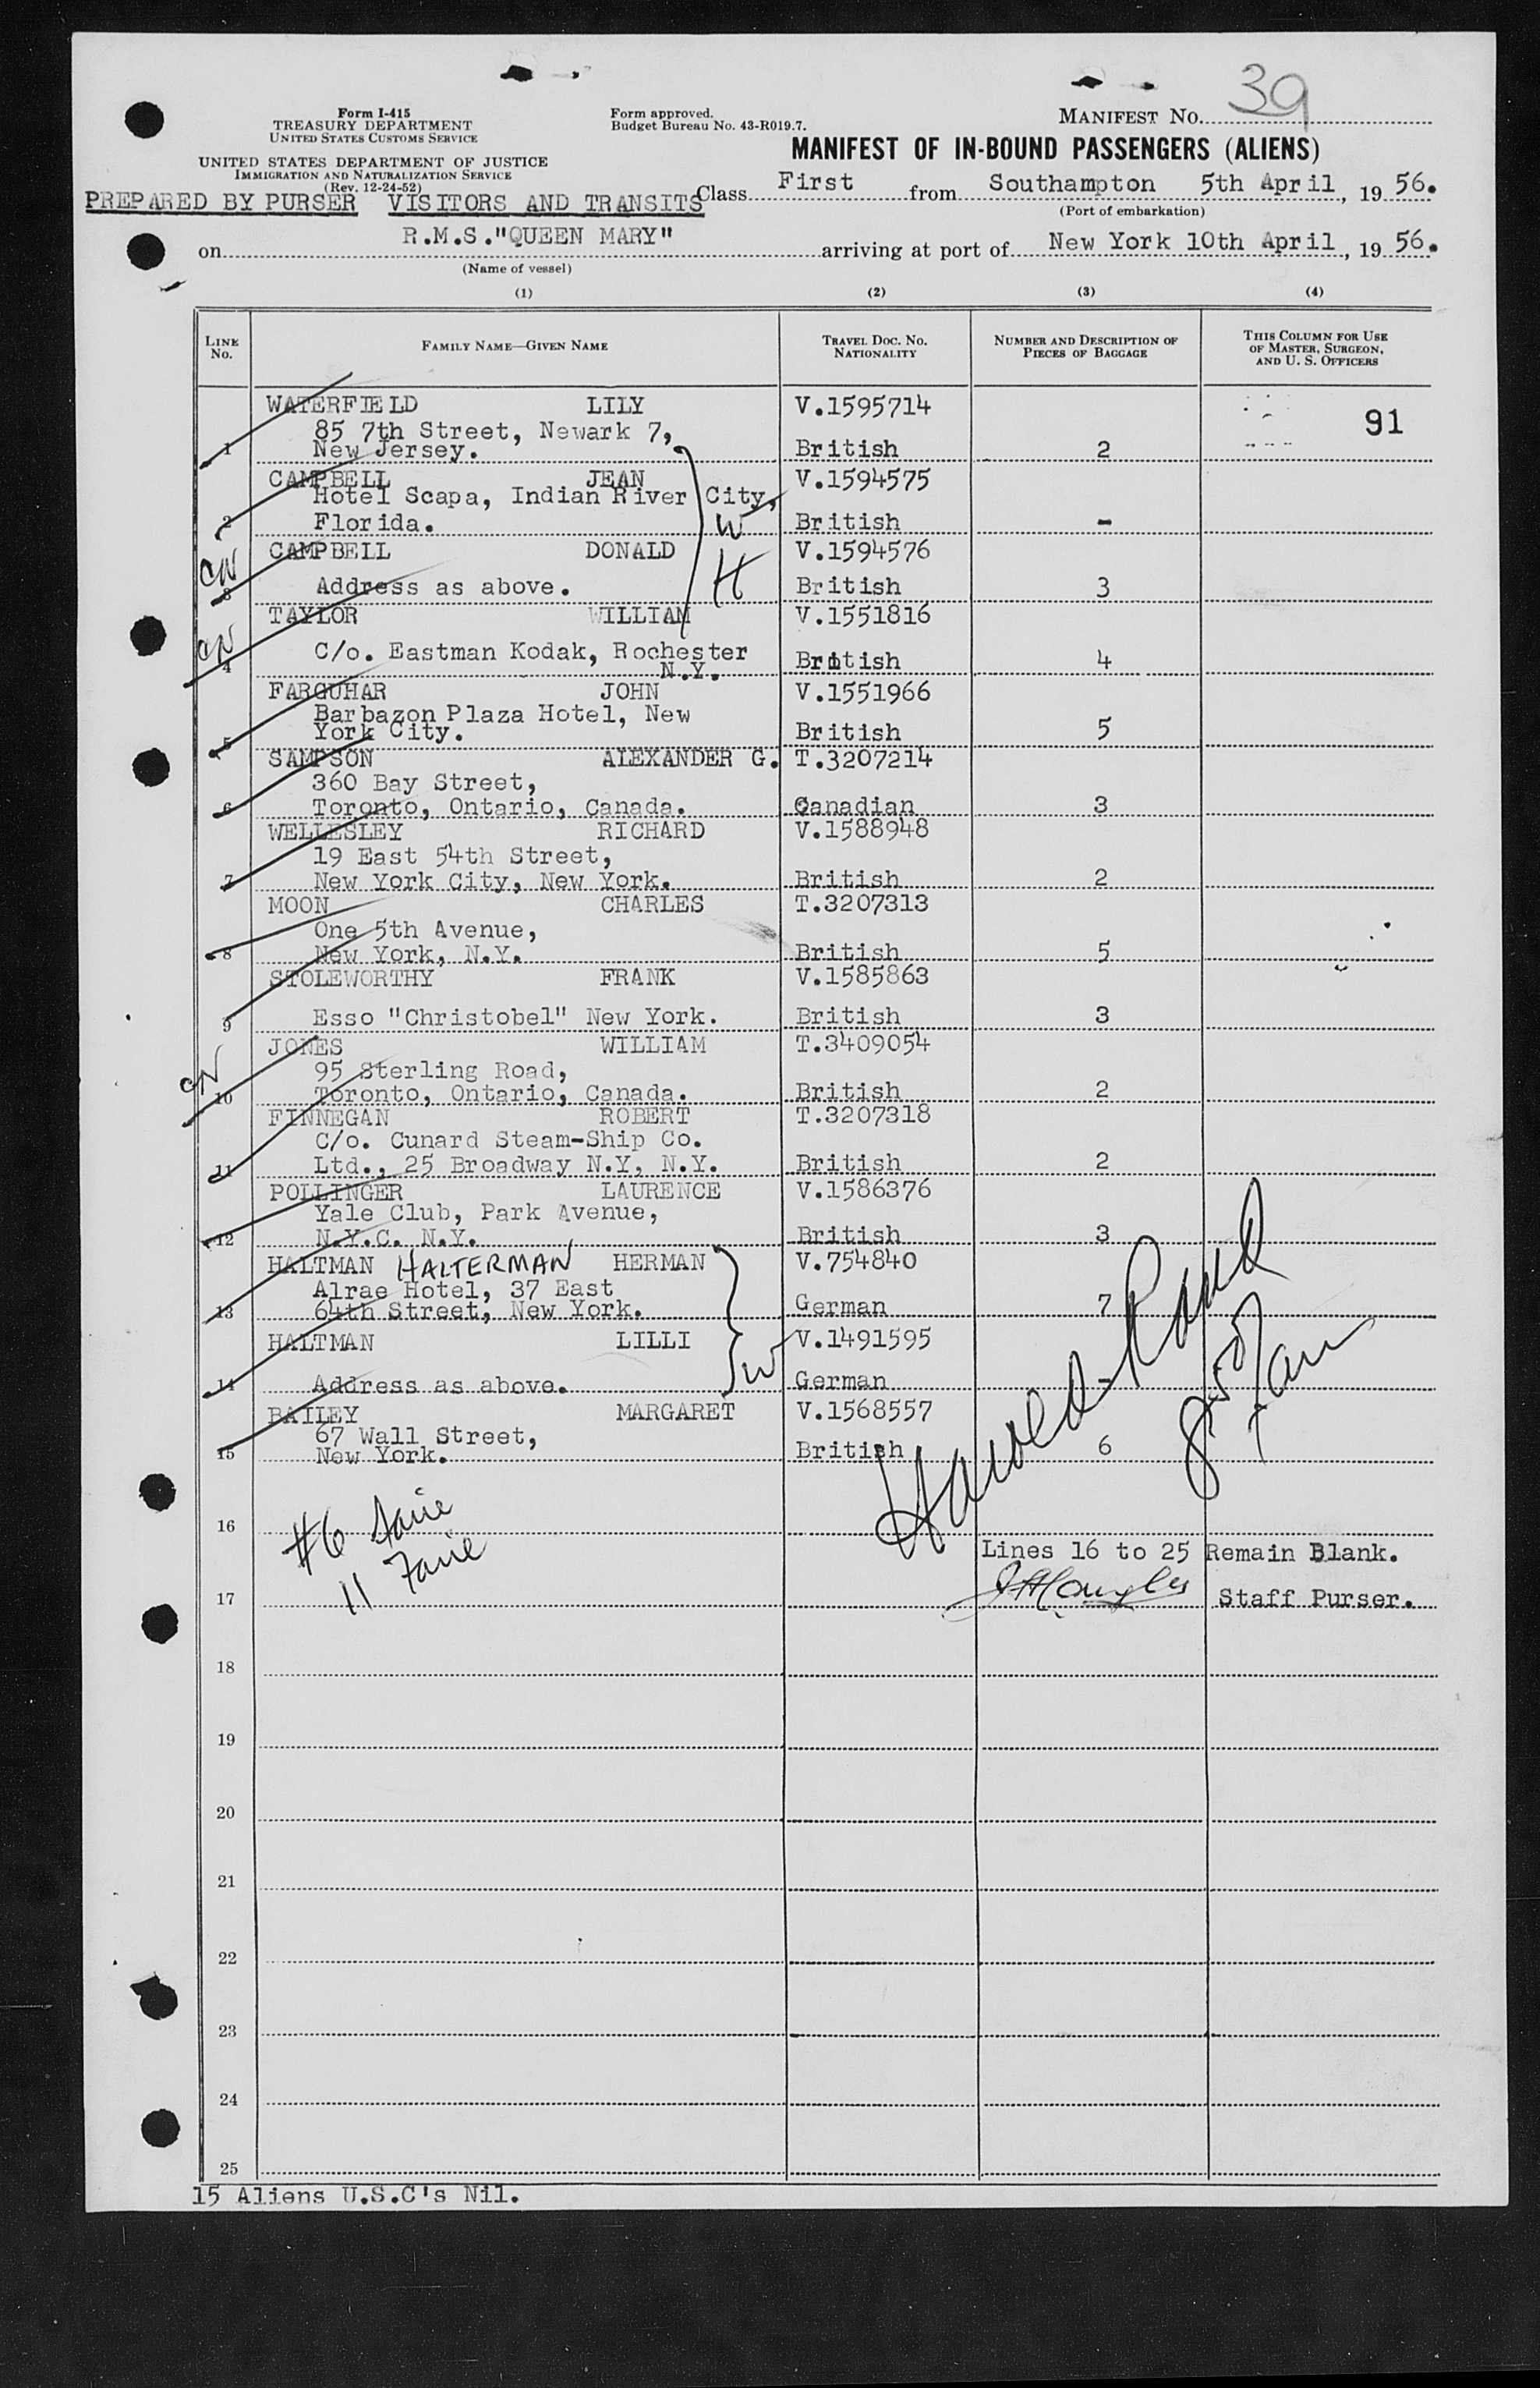 39
Form I-415
TREASURY DEPARTMENT
UNITED STATES CUSTOMS SERVICE
UNITED STATES DEPARTMENT OF JUSTICE
IMMIGRATION AND NATURALIZATION SERVICE
(Rev. 12-24-52)
PREPARED BY PURSER VISITORS AND TRANSITS
Form approved.
Budget Bureau No. 43-R019.7.
MANIFEST No.
MANIFEST OF IN-BOUND PASSENGERS (ALIENS)
Class First from Southampton 5th April, 1956.
(Port of embarkation)
on R.M.S."QUEEN MARY" arriving at port of New York 10th April, 1956.
(Name of vessel)
(1) (2) (3) (4)
LINE No.
FAMILY NAME—GIVEN NAME
TRAVEL DOC. NO. NATIONALITY
NUMBER AND DESCRIPTION OF PIECES OF BAGGAGE
THIS COLUMN FOR USE OF MASTER, SURGEON, AND U. S. OFFICERS
WATERFIELD LILY V.1595714 91
85 7th Street, Newark 7,
1 New Jersey. British 2
CAMPBELL JEAN V.1594575
Hotel Scapa, Indian River City,
2 Florida. W British -
CAMPBELL DONALD V.1594576
CN
3 Address as above. H British 3
TAYLOR WILLIAM V.1551816
CN
C/o. Eastman Kodak, Rochester
4 N.Y. British 4
FARQUHAR JOHN V.1551966
Barbazon Plaza Hotel, New
5 York City. British 5
SAMPSON ALEXANDER G. T.3207214
360 Bay Street,
6 Toronto, Ontario, Canada. Canadian 3
WELLESLEY RICHARD V.1588948
19 East 54th Street,
7 New York City, New York. British 2
MOON CHARLES T.3207313
One 5th Avenue,
8 New York, N.Y. British 5
STOLEWORTHY FRANK V.1585863
9 Esso "Christobel" New York. British 3
JONES WILLIAM T.3409054
CN
95 Sterling Road,
10 Toronto, Ontario, Canada. British 2
FINNEGAN ROBERT T.3207318
C/o. Cunard Steam-Ship Co.
11 Ltd., 25 Broadway N.Y, N.Y. British 2
POLLINGER LAURENCE V.1586376
Yale Club, Park Avenue,
12 N.Y.C. N.Y. British 3
HALTMAN HALTERMAN HERMAN V.754840
Alrae Hotel, 37 East
13 64th Street, New York. German 7
HALTMAN LILLI V.1491595
14 Address as above. W German -
BAILEY MARGARET V.1568557
67 Wall Street,
15 New York. British 6
Harold
16 #6
11
Lines 16 to 25 Remain Blank.
17 Staff Purser.
18
19
20
21
22
23
24
25
15 Aliens U.S.C's Nil.